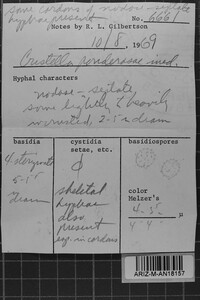 some cordons of nodose-septate
hyphae present No. 6661
Notes by R. L. Gilbertson
10/8, 1969
Cristella
Hyphal characters
nodose-septate,
some lightly & heavily
incrusted, 2-5 µ diam
basidia cystidia basidiospores
setae, etc.
4 sterigmate
5-
diam
skeletal
hyphae
also
present
esp. in cordons
color
Melzer's
4-5
µ
ARIZ-M-AN18157